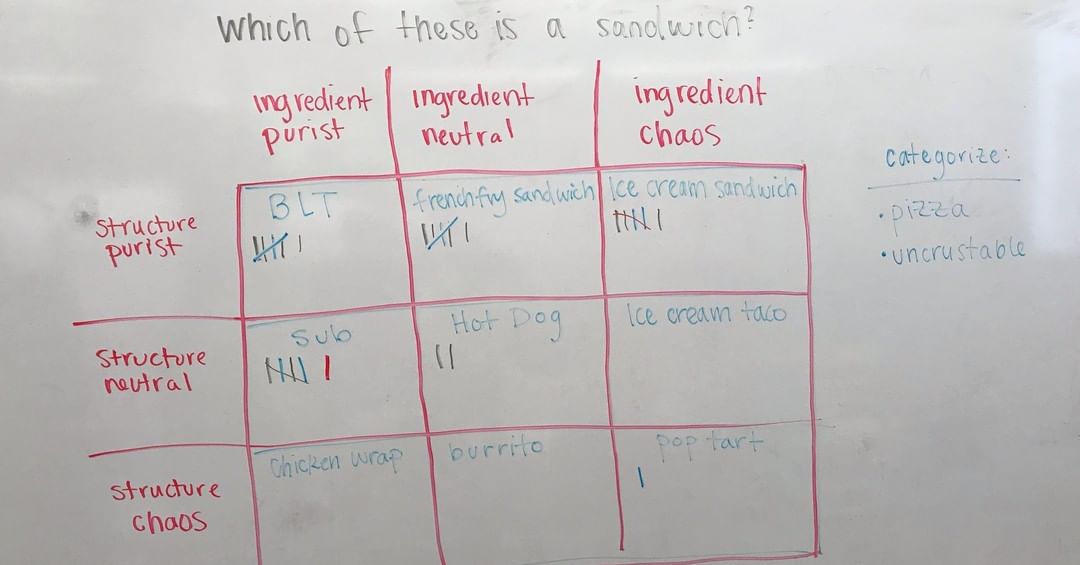 Which of these is a sandwich?
ingredient purist
ingredient neutral
ingredient chaos
categorize:
• pizza
• uncrustable
structure purist
BLT
french-fry sandwich
Ice cream sandwich
structure neutral
Sub
Hot Dog
Ice cream taco
structure chaos
Chicken wrap
burrito
pop tart